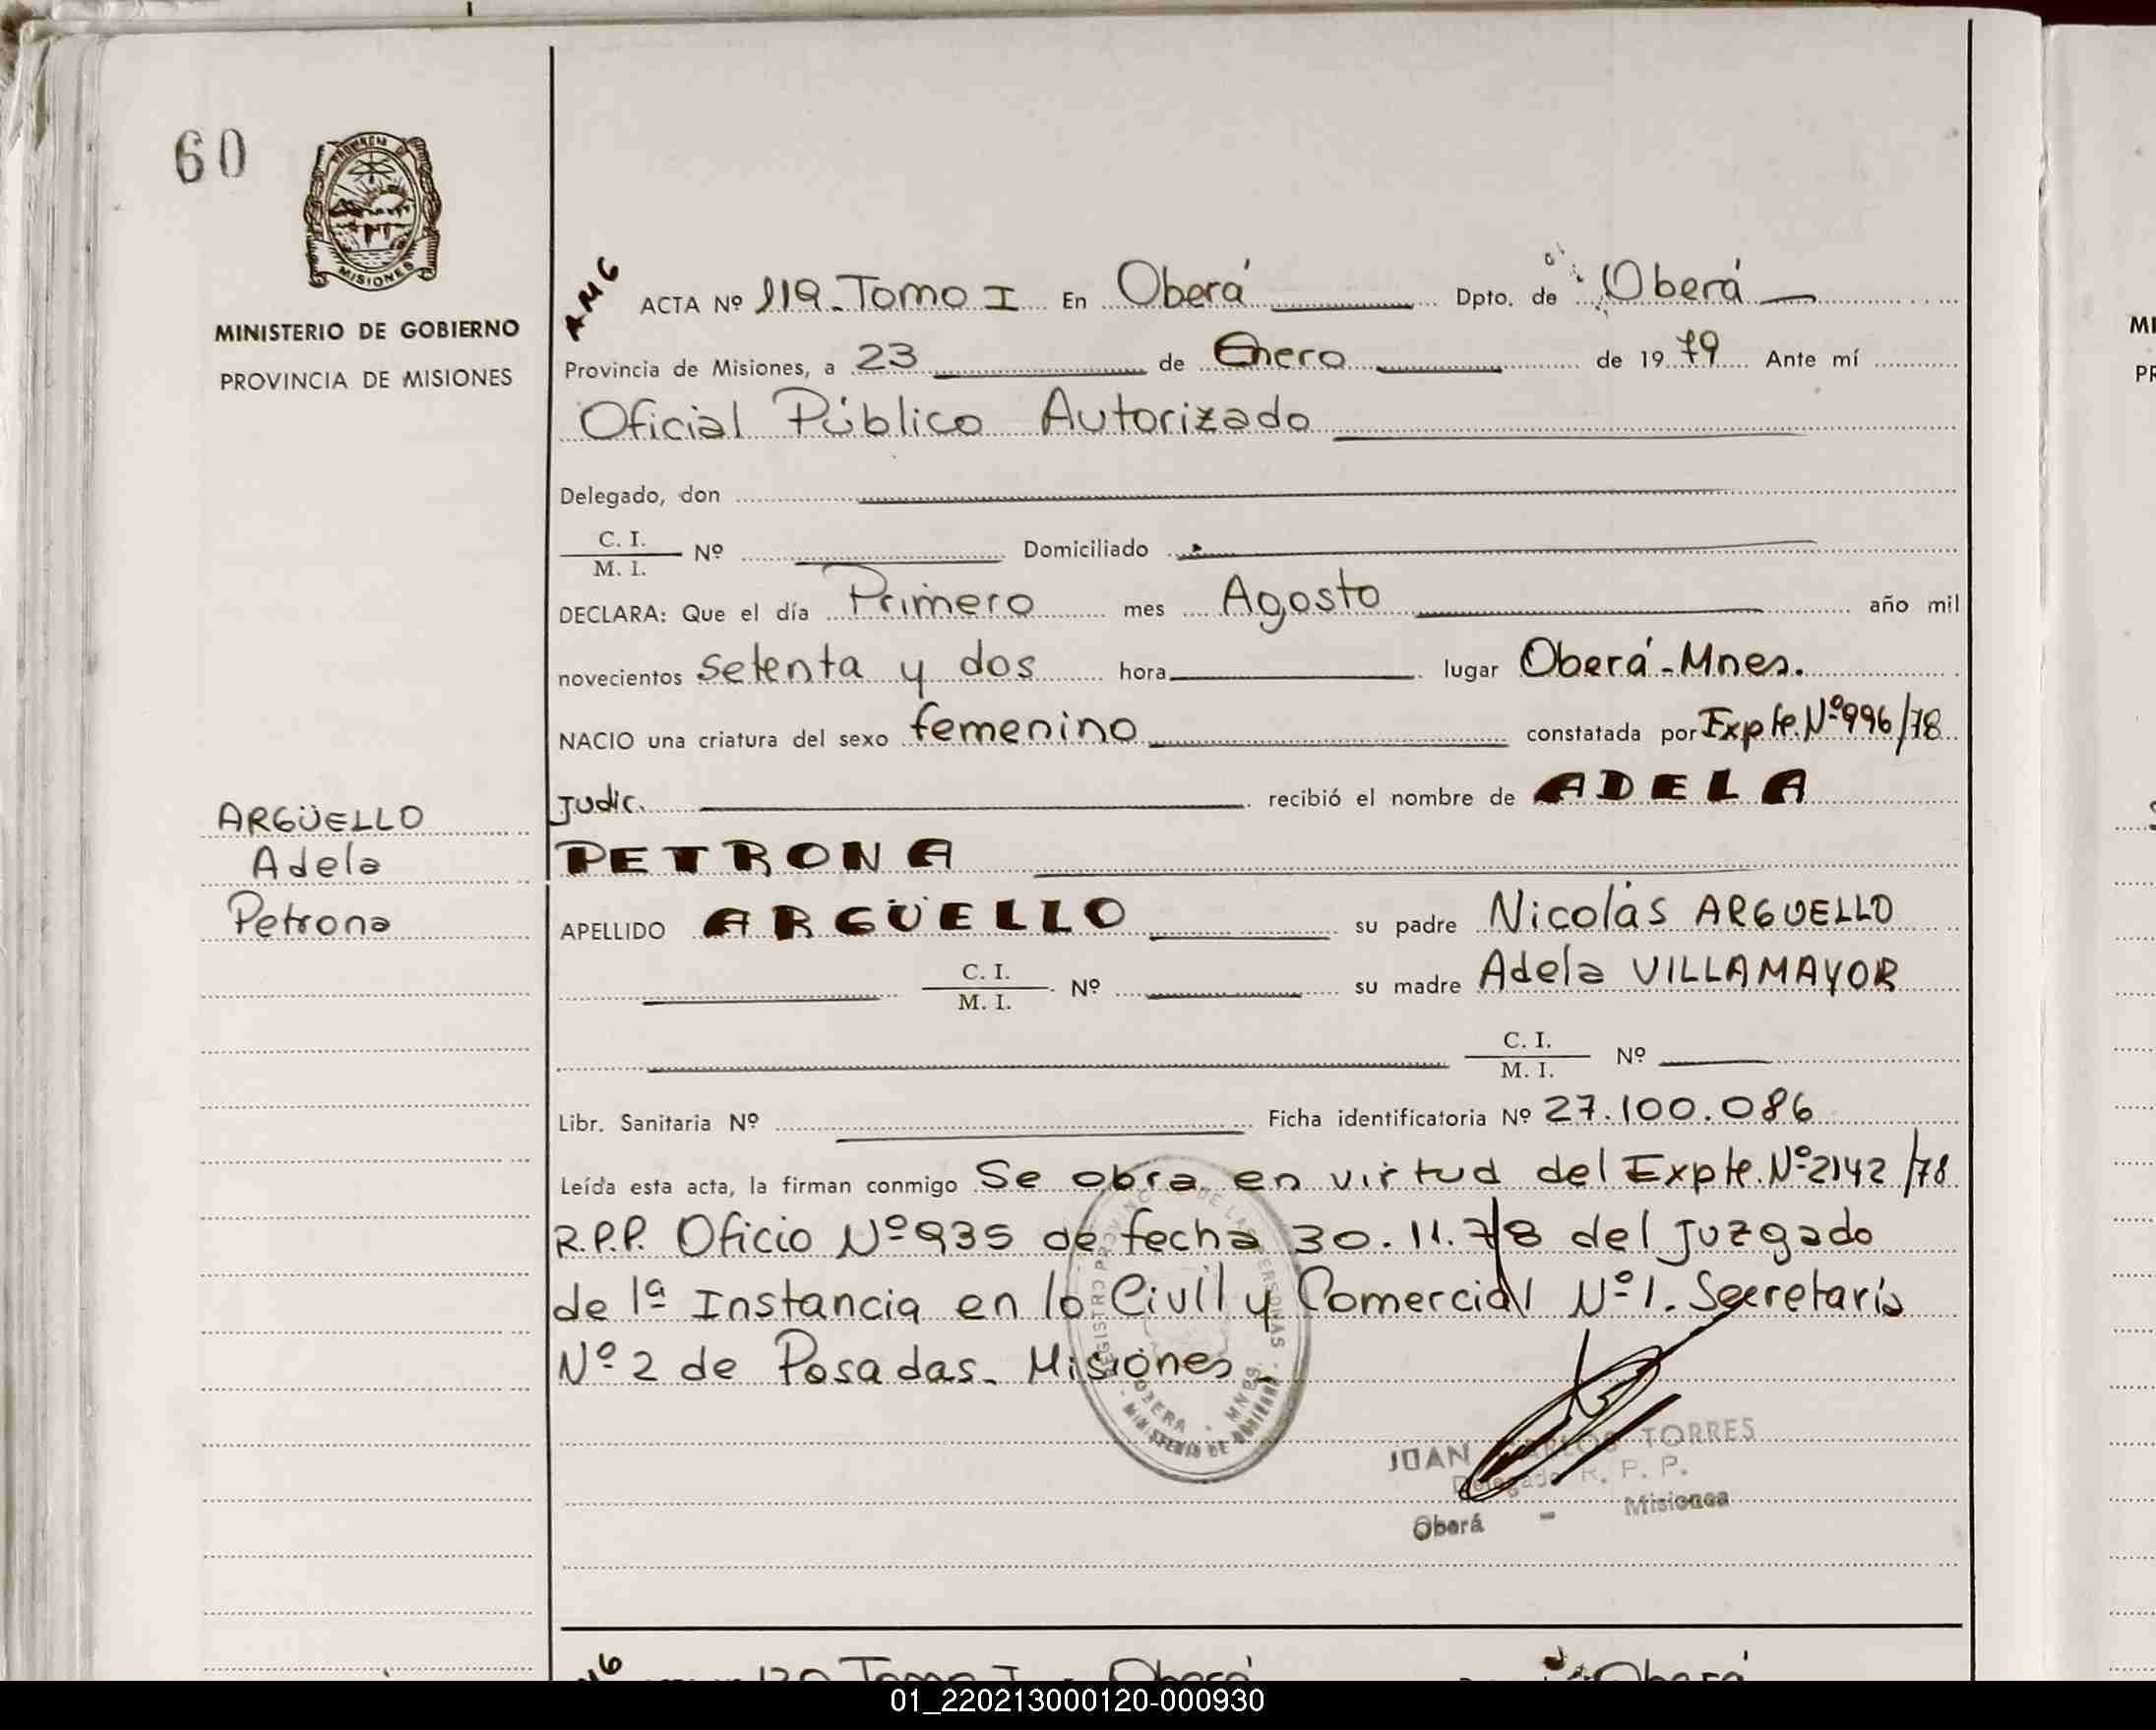 60
PROVINCIA D
MISIONES
MINISTERIO DE GOBIERNO
PROVINCIA DE MISIONES
AMG
ACTA Nº 119. Tomo I En Oberá Dpto. de Oberá
Provincia de Misiones, a 23 de Enero de 1979 Ante mí
Oficial Público Autorizado
Delegado, don
C. I.
M. I. Nº Domiciliado
DECLARA: Que el día Primero mes Agosto año mil
novecientos setenta y dos hora lugar Oberá-Mnes.
NACIO una criatura del sexo femenino constatada por Expte. Nº 996/78
Judic. recibió el nombre de ADELA
PETRONA
ARGÜELLO
Adela
Petrona
APELLIDO ARGÜELLO su padre Nicolás ARGUELLO
C. I.
M. I. Nº su madre Adela VILLAMAYOR
C. I.
M. I. Nº
Libr. Sanitaria Nº Ficha identificatoria Nº 27.100.086
Leída esta acta, la firman conmigo Se obra en virtud del Expte. Nº 2142/78
R.P.P. Oficio Nº 935 de fecha 30.11.78 del Juzgado
de 1ª Instancia en lo Civil y Comercial Nº 1. Secretaría
Nº 2 de Posadas. Misiones
REGISTRO PROVINC DE LAS PERSONAS
OBERA - MNES.
MINISTERIO DE GOBIERNO
JUAN CARLOS TORRES
Delegado R. P. P.
Oberá - Misiones
120 Tomo I Oberá Oberá
01_220213000120-000930